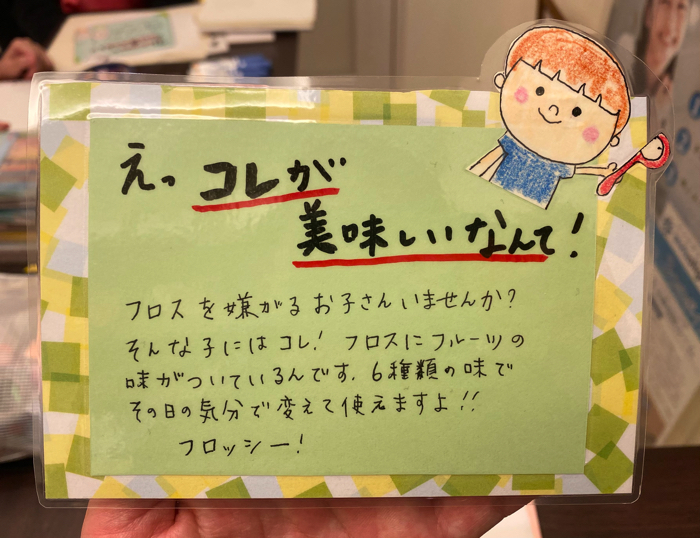 えっ コレが
美味しいなんて!
フロスを嫌がるお子さんいませんか?
そんな子にはコレ! フロスにフルーツの
味がついているんです. 6種類の味で
その日の気分で変えて使えますよ!!
フロッシー!